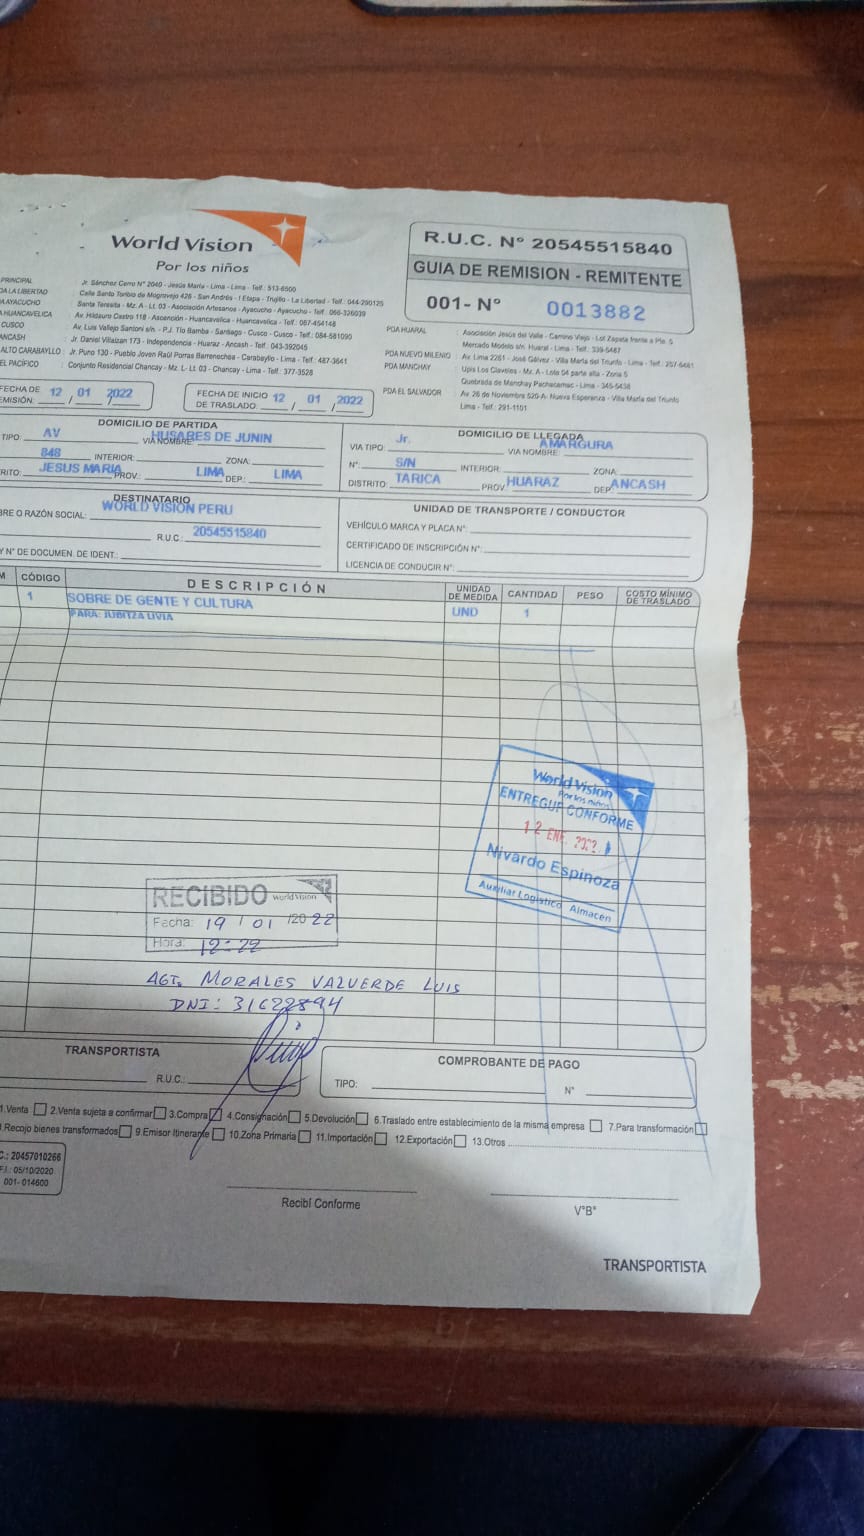 World Vision
Por los niños
R.U.C. N° 20545515840
GUIA DE REMISION - REMITENTE
001- N° 0013882
PRINCIPAL Jr. Sánchez Cerro N° 2040 - Jesús María - Lima - Lima - Telf.: 513-6500
DA LA LIBERTAD : Calle Santo Toribio de Mogrovejo 426 - San Andrés - I Etapa - Trujillo - La Libertad - Telf.: 044-290125
A AYACUCHO : Santa Teresita - Mz. A - Lt. 03 - Asociación Artesanos - Ayacucho - Ayacucho - Telf.: 066-326039
A HUANCAVELICA : Av. Hildauro Castro 118 - Ascención - Huancavelica - Huancavelica - Telf.: 067-454148
CUSCO : Av. Luis Vallejo Santoni s/n. - P.J. Tío Bamba - Santiago - Cusco - Cusco - Telf.: 084-581090
ANCASH : Jr. Daniel Villaizan 173 - Independencia - Huaraz - Ancash - Telf.: 043-392045
ALTO CARABAYLLO : Jr. Puno 130 - Pueblo Joven Raúl Porras Barrenechea - Carabayllo - Lima - Telf.: 487-3641
EL PACÍFICO : Conjunto Residencial Chancay - Mz. L- Lt. 03 - Chancay - Lima - Telf.: 377-3528
PDA HUARAL : Asociación Jesús del Valle - Camino Viejo - Lot Zapata frente a
Mercado Modelo s/n. Huaral - Lima - Telf.: 339-5487
PDA NUEVO MILENIO : Av. Lima 2261 - José Gálvez - Villa María del Triunfo - Lima - Telf.:
PDA MANCHAY : Upis Los Claveles - Mz. A - Lote 04 parte alta - Zona 5
Quebrada de Manchay Pachacamac - Lima - 345-5438
PDA EL SALVADOR : Av. 26 de Noviembre 520-A- Nueva Esperanza - Villa María del Triunfo
Lima - Telf.: 291-1101
FECHA DE EMISIÓN: 12 / 01 / 2022
FECHA DE INICIO DE TRASLADO: 12 / 01 / 2022
DOMICILIO DE PARTIDA
TIPO: AV VIA NOMBRE: HUSARES DE JUNIN
848 INTERIOR: ZONA:
RITO: JESUS MARIA PROV.: LIMA DEP.: LIMA
DOMICILIO DE LLEGADA
VIA TIPO: Jr. VIA NOMBRE: AMARGURA
N°: S/N INTERIOR: ZONA:
DISTRITO: TARICA PROV. HUARAZ DEP. ANCASH
DESTINATARIO
BRE O RAZÓN SOCIAL: WORLD VISION PERU
R.U.C.: 20545515840
Y N° DE DOCUMEN. DE IDENT.:
UNIDAD DE TRANSPORTE / CONDUCTOR
VEHÍCULO MARCA Y PLACA N°:
CERTIFICADO DE INSCRIPCIÓN N°:
LICENCIA DE CONDUCIR N°:
M CÓDIGO DESCRIPCIÓN UNIDAD DE MEDIDA CANTIDAD PESO COSTO MÍNIMO DE TRASLADO
1 SOBRE DE GENTE Y CULTURA UND 1
PARA: JUBITZA LIVIA
World Vision
Por los niños
ENTREGUE CONFORME
12 ENE.
Nivardo Espinoza
Auxiliar Logístico Almacen
RECIBIDO World Vision
Fecha: 19 / 01 /2022
Hora: 12:22
AGT. MORALES VALVERDE LUIS
DNI: 31622894
TRANSPORTISTA
R.U.C.:
COMPROBANTE DE PAGO
TIPO: N°
1.Venta 2.Venta sujeta a confirmar 3.Compra 4.Consignación 5.Devolución 6.Traslado entre establecimiento de la misma empresa 7.Para transformación
.Recojo bienes transformados 9.Emisor Itinerante 10.Zona Primaria 11.Importación 12.Exportación 13.Otros
C.: 20457010266
F.I.: 05/10/2020
001- 014600
Recibí Conforme
V°B°
TRANSPORTISTA